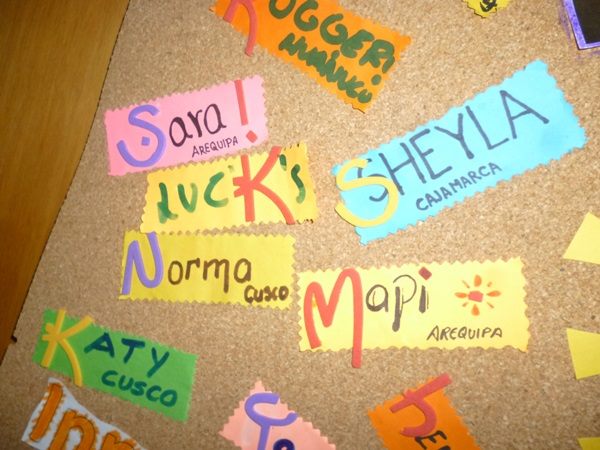 RUGGERI
HUÁNUCO
Sara!
AREQUIPA
SHEYLA
CAJAMARCA
LUCK's
Norma
CUSCO
Mapi
AREQUIPA
KATY
CUSCO